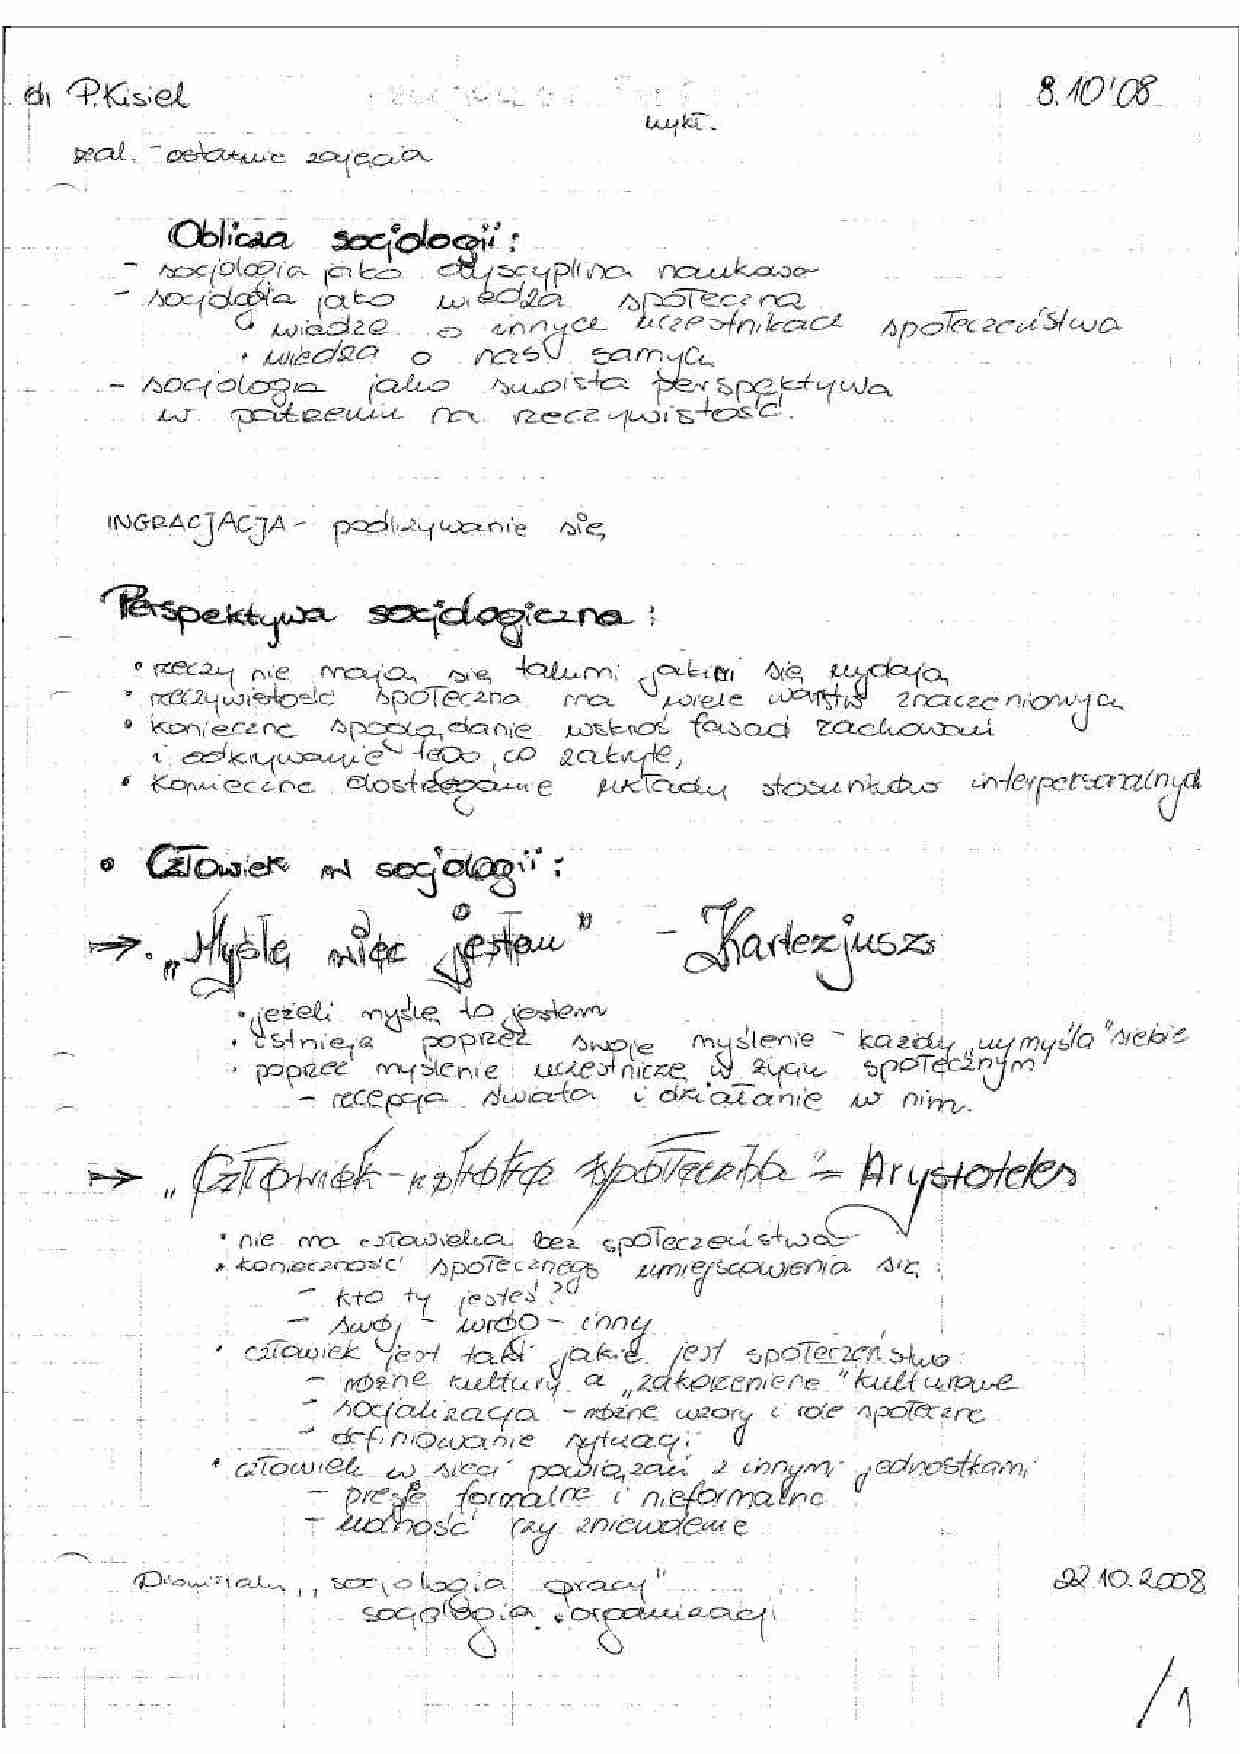 dr P.Kisiel 8.10'08
wykł.
zal. - ostatnie zajęcia
Oblicza socjologii:
- socjologia jako dyscyplina naukowa
- socjologia jako wiedza społeczna
• wiedza o innych uczestnikach społeczeństwa
• wiedza o nas samych
- socjologia jako swoista perspektywa
w patrzeniu na rzeczywistość.
INGRACJACJA - podlizywanie się
Perspektywa socjologiczna:
• rzeczy nie mają się takimi jakimi się wydają
• rzeczywistość społeczna ma wiele warstw znaczeniowych
• konieczne spoglądanie wskroś fasad zachowań
i odkrywanie tego, co zakryte,
• Konieczne dostrzeganie układy stosunków interpersonalnych
• Człowiek w socjologii:
→ • „Myślę więc jestem" - Kartezjusz
• jeżeli myślę to jestem
• istnieją poprzez swoje myślenie - każdy „wymyśla" siebie
• poprzez myślenie uczestniczę w życiu społecznym
- recepcja świata i działanie w nim.
→ „Człowiek - istota społeczna - Arystoteles
• nie ma człowieka bez społeczeństwa
• konieczność społecznego umiejscowienia się:
- kto ty jesteś?
- swój - wróg - inny
• człowiek jest taki jakie jest społeczeństwo:
- różne kultury a „zakorzenienie" kulturowe
- socjalizacja - różne wzory i role społeczne
- definiowanie sytuacji
• człowiek w sieci powiązań z innymi jednostkami
- presje formalne i nieformalne
- wolność czy zniewolenie
„socjologia pracy" 22.10.2008
socjologia organizacji
/1